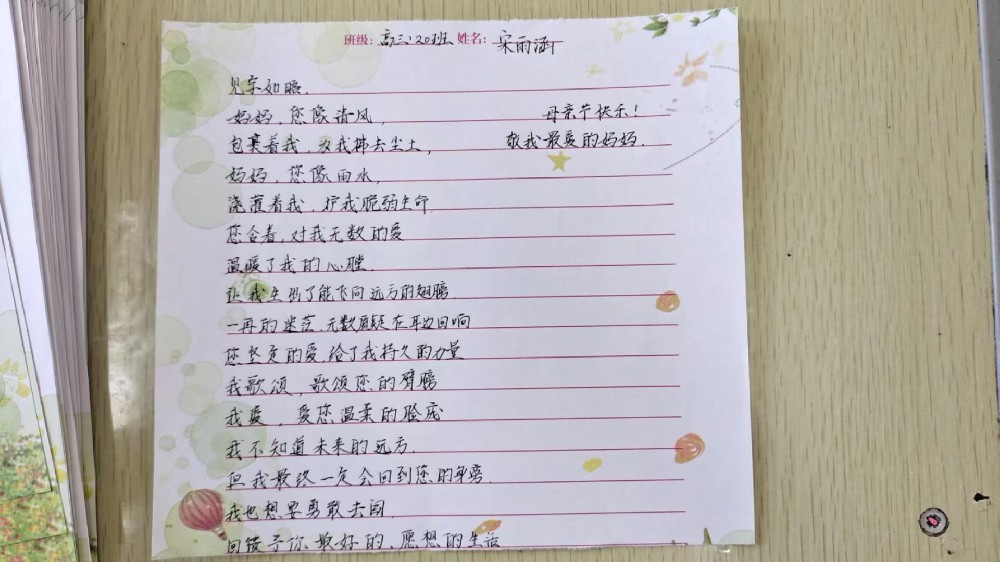 班级：高三·20班 姓名：宋雨涵
见字如晤.
妈妈，您像清风，
母亲节快乐！
包裹着我，为我拂去尘土，
敬我最爱的妈妈.
妈妈，您像雨水，
浇灌着我，护我脆弱生命
您含着，对我无数的爱
温暖了我的心膛.
让我生出了能飞向远方的翅膀.
一再的迷茫，无数质疑在耳边回响
您坚定的爱，给了我持久的力量
我歌颂，歌颂您的臂膀
我爱，爱您温柔的脸庞
我不知道未来的远方.
但我最终一定会回到您的身旁.
我也想要勇敢去闯.
回馈予你最好的，愿想的生活